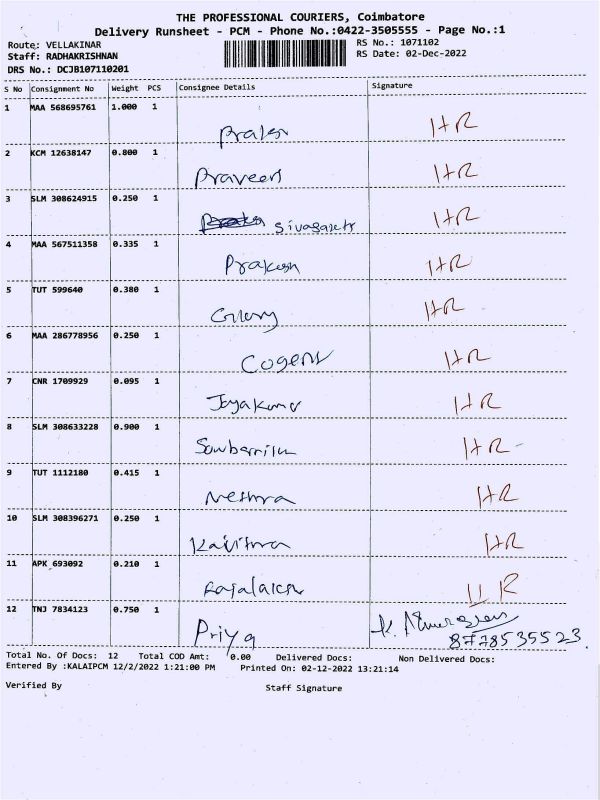 THE PROFESSIONAL COURIERS, Coimbatore
Delivery Runsheet - PCM - Phone No.:0422-3505555 - Page No.:1
Route: VELLAKINAR RS No.: 1071102
Staff: RADHAKRISHNAN RS Date: 02-Dec-2022
DRS No.: DCJB107110201
S No Consignment No Weight PCS Consignee Details Signature
1 MAA 568695761 1.000 1
HR
2 KCM 12638147 0.800 1
Praveen HR
3 SLM 308624915 0.250 1
HR
4 MAA 567511358 0.335 1
Prakash HR
5 TUT 599640 0.380 1
HR
6 MAA 286778956 0.250 1
HR
7 CNR 1709929 0.095 1
Jayakumar HR
8 SLM 308633228 0.900 1
HR
9 TUT 1112180 0.415 1
HR
10 SLM 308396271 0.250 1
Kavithra HR
11 APK 693092 0.210 1
HR
12 TNJ 7834123 0.750 1
Priya
8778535523
Total No. Of Docs: 12 Total COD Amt: 0.00 Delivered Docs: Non Delivered Docs:
Entered By :KALAIPCM 12/2/2022 1:21:00 PM Printed On: 02-12-2022 13:21:14
Verified By Staff Signature